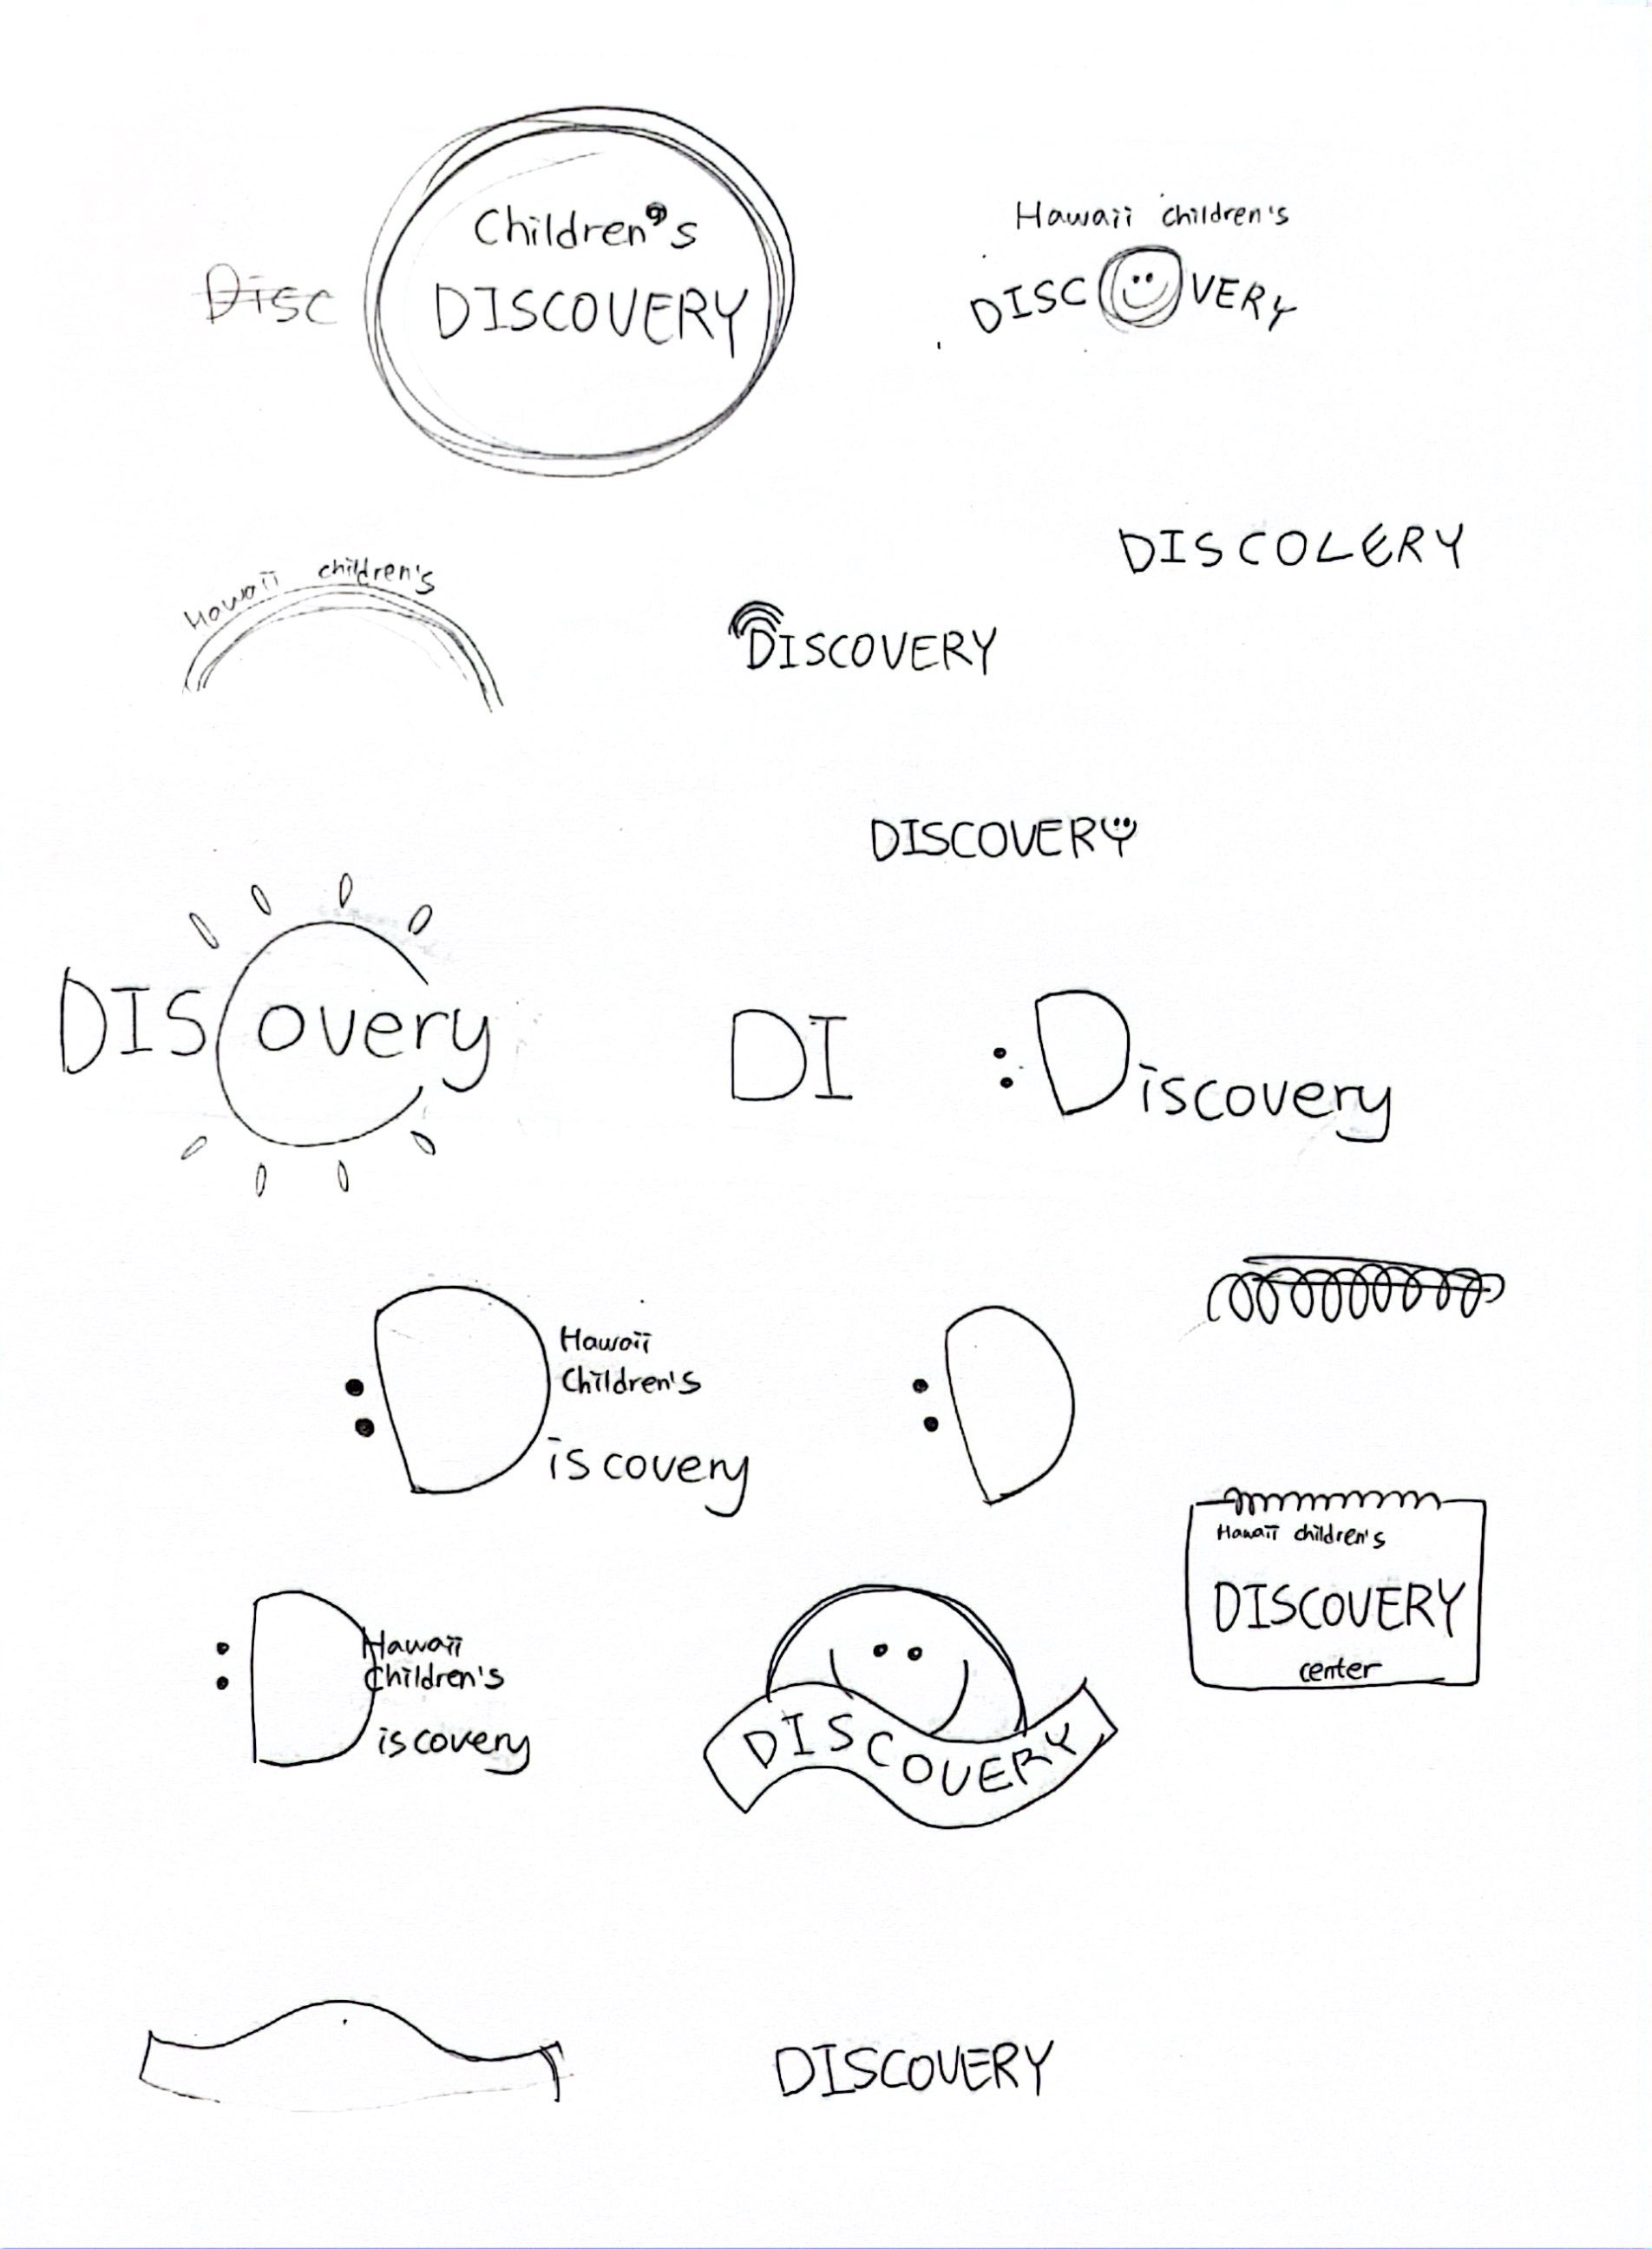 Children's
Disc
DISCOVERY
Hawaii children's
DISCOVERY
DISCOLERY
Hawaii children's
DISCOVERY
DISCOVERY
DIScovery
DI
:Discovery
Hawaii
Children's
:Discovery
:D
Hawaii children's
DISCOVERY
center
Hawaii
Children's
:Discovery
DISCOVERY
DISCOVERY